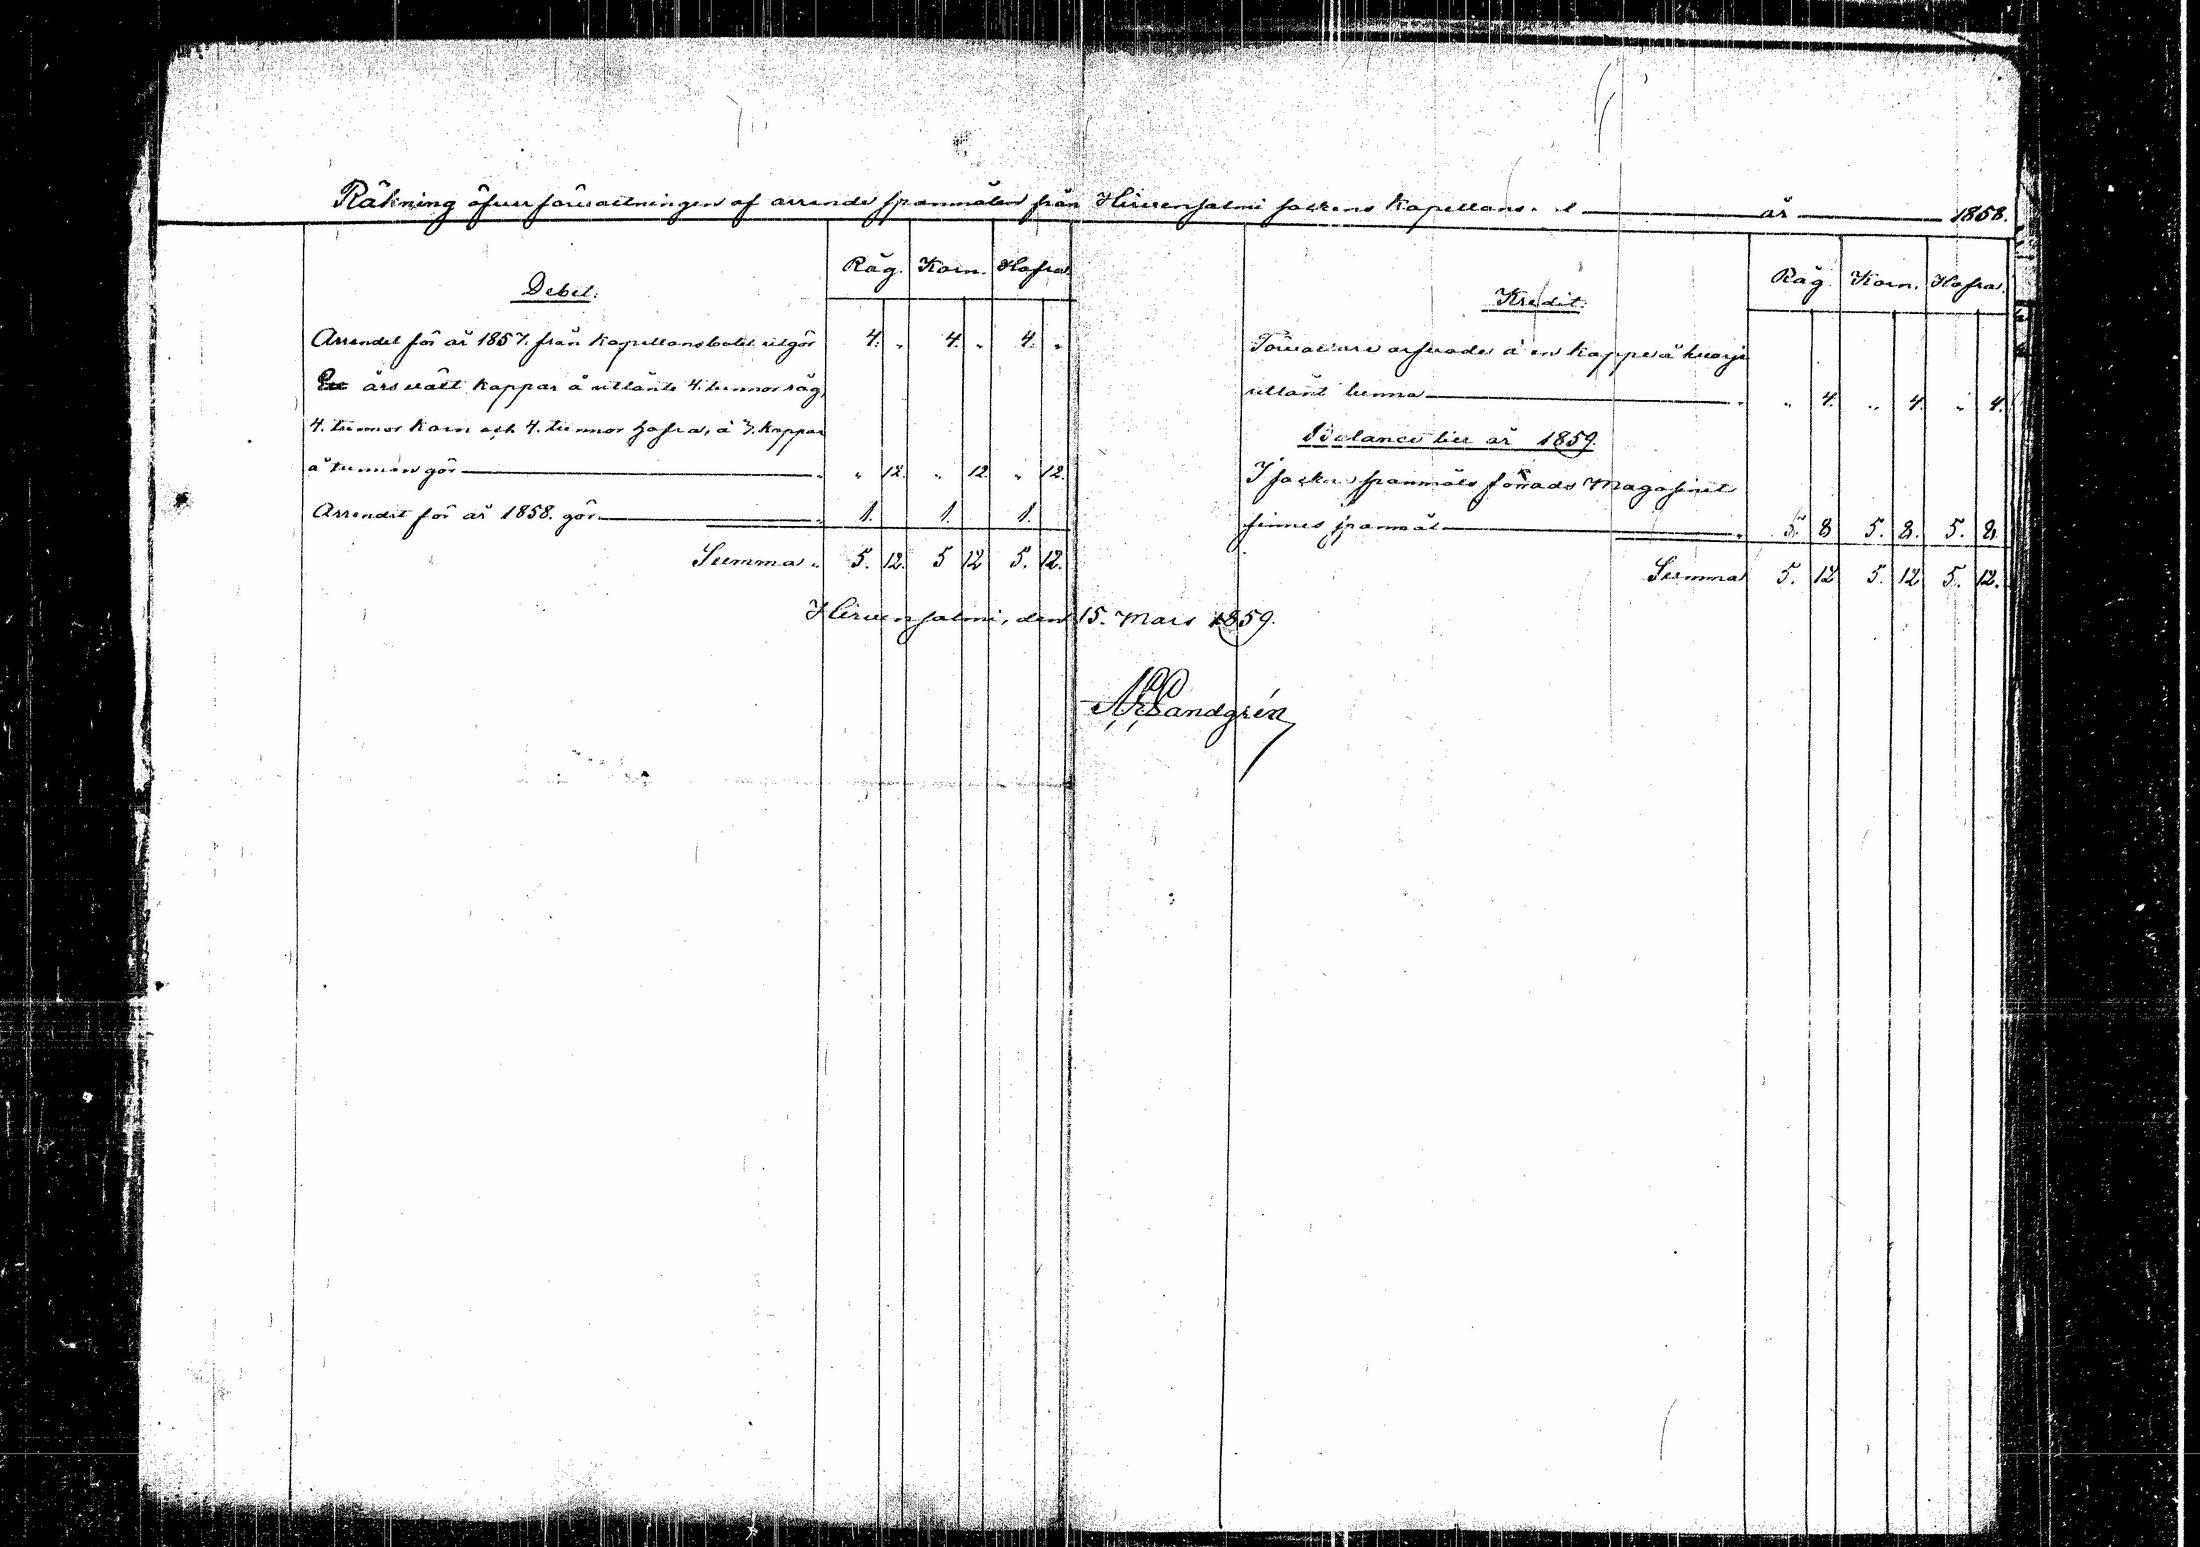 Räkning öfver förvaltningen af arrende spanmålen från Hirvensalmi sockens Kapellans år 1858.
Debet:
Råg. Korn. Hafra.
Arrendet för år 1857. från Kapellansbolet utgör 4. " 4. " 4. "
års växt kappar å utlånte 4. tunnor råg,
4. tunnor korn och 4. tunnor hafra, à 3. kappar
å tunnan gör " 12. " 12 " 12.
Arrendet för år 1858. gör 1. 1. 1.
Summa 5. 12. 5 12 5. 12.
Kredit:
Råg. Korn. Hafra.
arfvode à en kappe å hvarje
utlånt tunna " 4. " 4. " 4.
Balance till år 1859.
I sockne spanmåls förråds Magasinet
finnes spanmål 5. 8 5. 8. 5. 8.
Summa 5. 12 5. 12 5. 12.
Hirvensalmi, den 15. Mars 1859.
Sandgrén